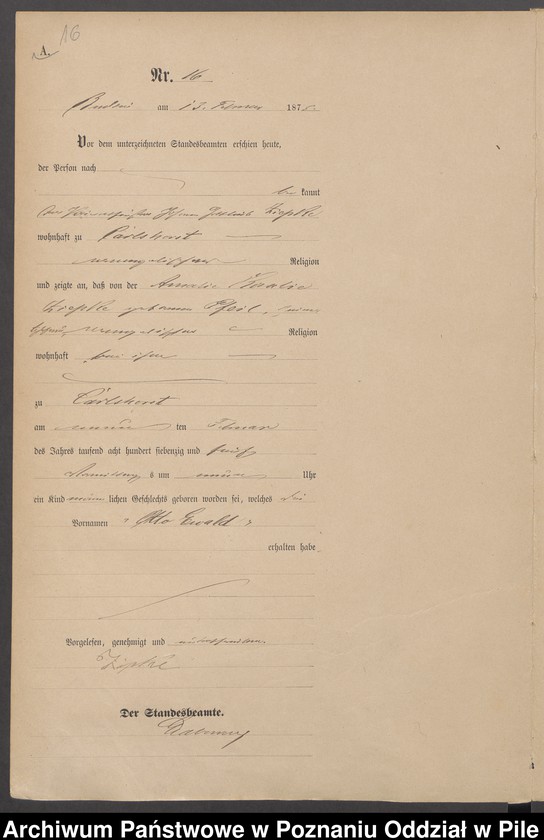 16
A.
Nr. 16
am 13. Februar 1875.
Vor dem unterzeichneten Standesbeamten erschien heute,
der Person nach
be kannt
Gottlieb
wohnhaft zu Carlshorst
evangelischer Religion
und zeigte an, daß von der Amalie
geborenen Pfeil, seiner
Ehefrau, evangelischer Religion
wohnhaft bei ihm
zu Carlshorst
am neunten Februar
des Jahres tausend acht hundert siebenzig und fünf
Vormittags um neun Uhr
ein Kind männlichen Geschlechts geboren worden sei, welches die
Vornamen Otto Ewald
erhalten habe
Vorgelesen, genehmigt und unterschrieben
Der Standesbeamte.
Archiwum Państwowe w Poznaniu Oddział w Pile